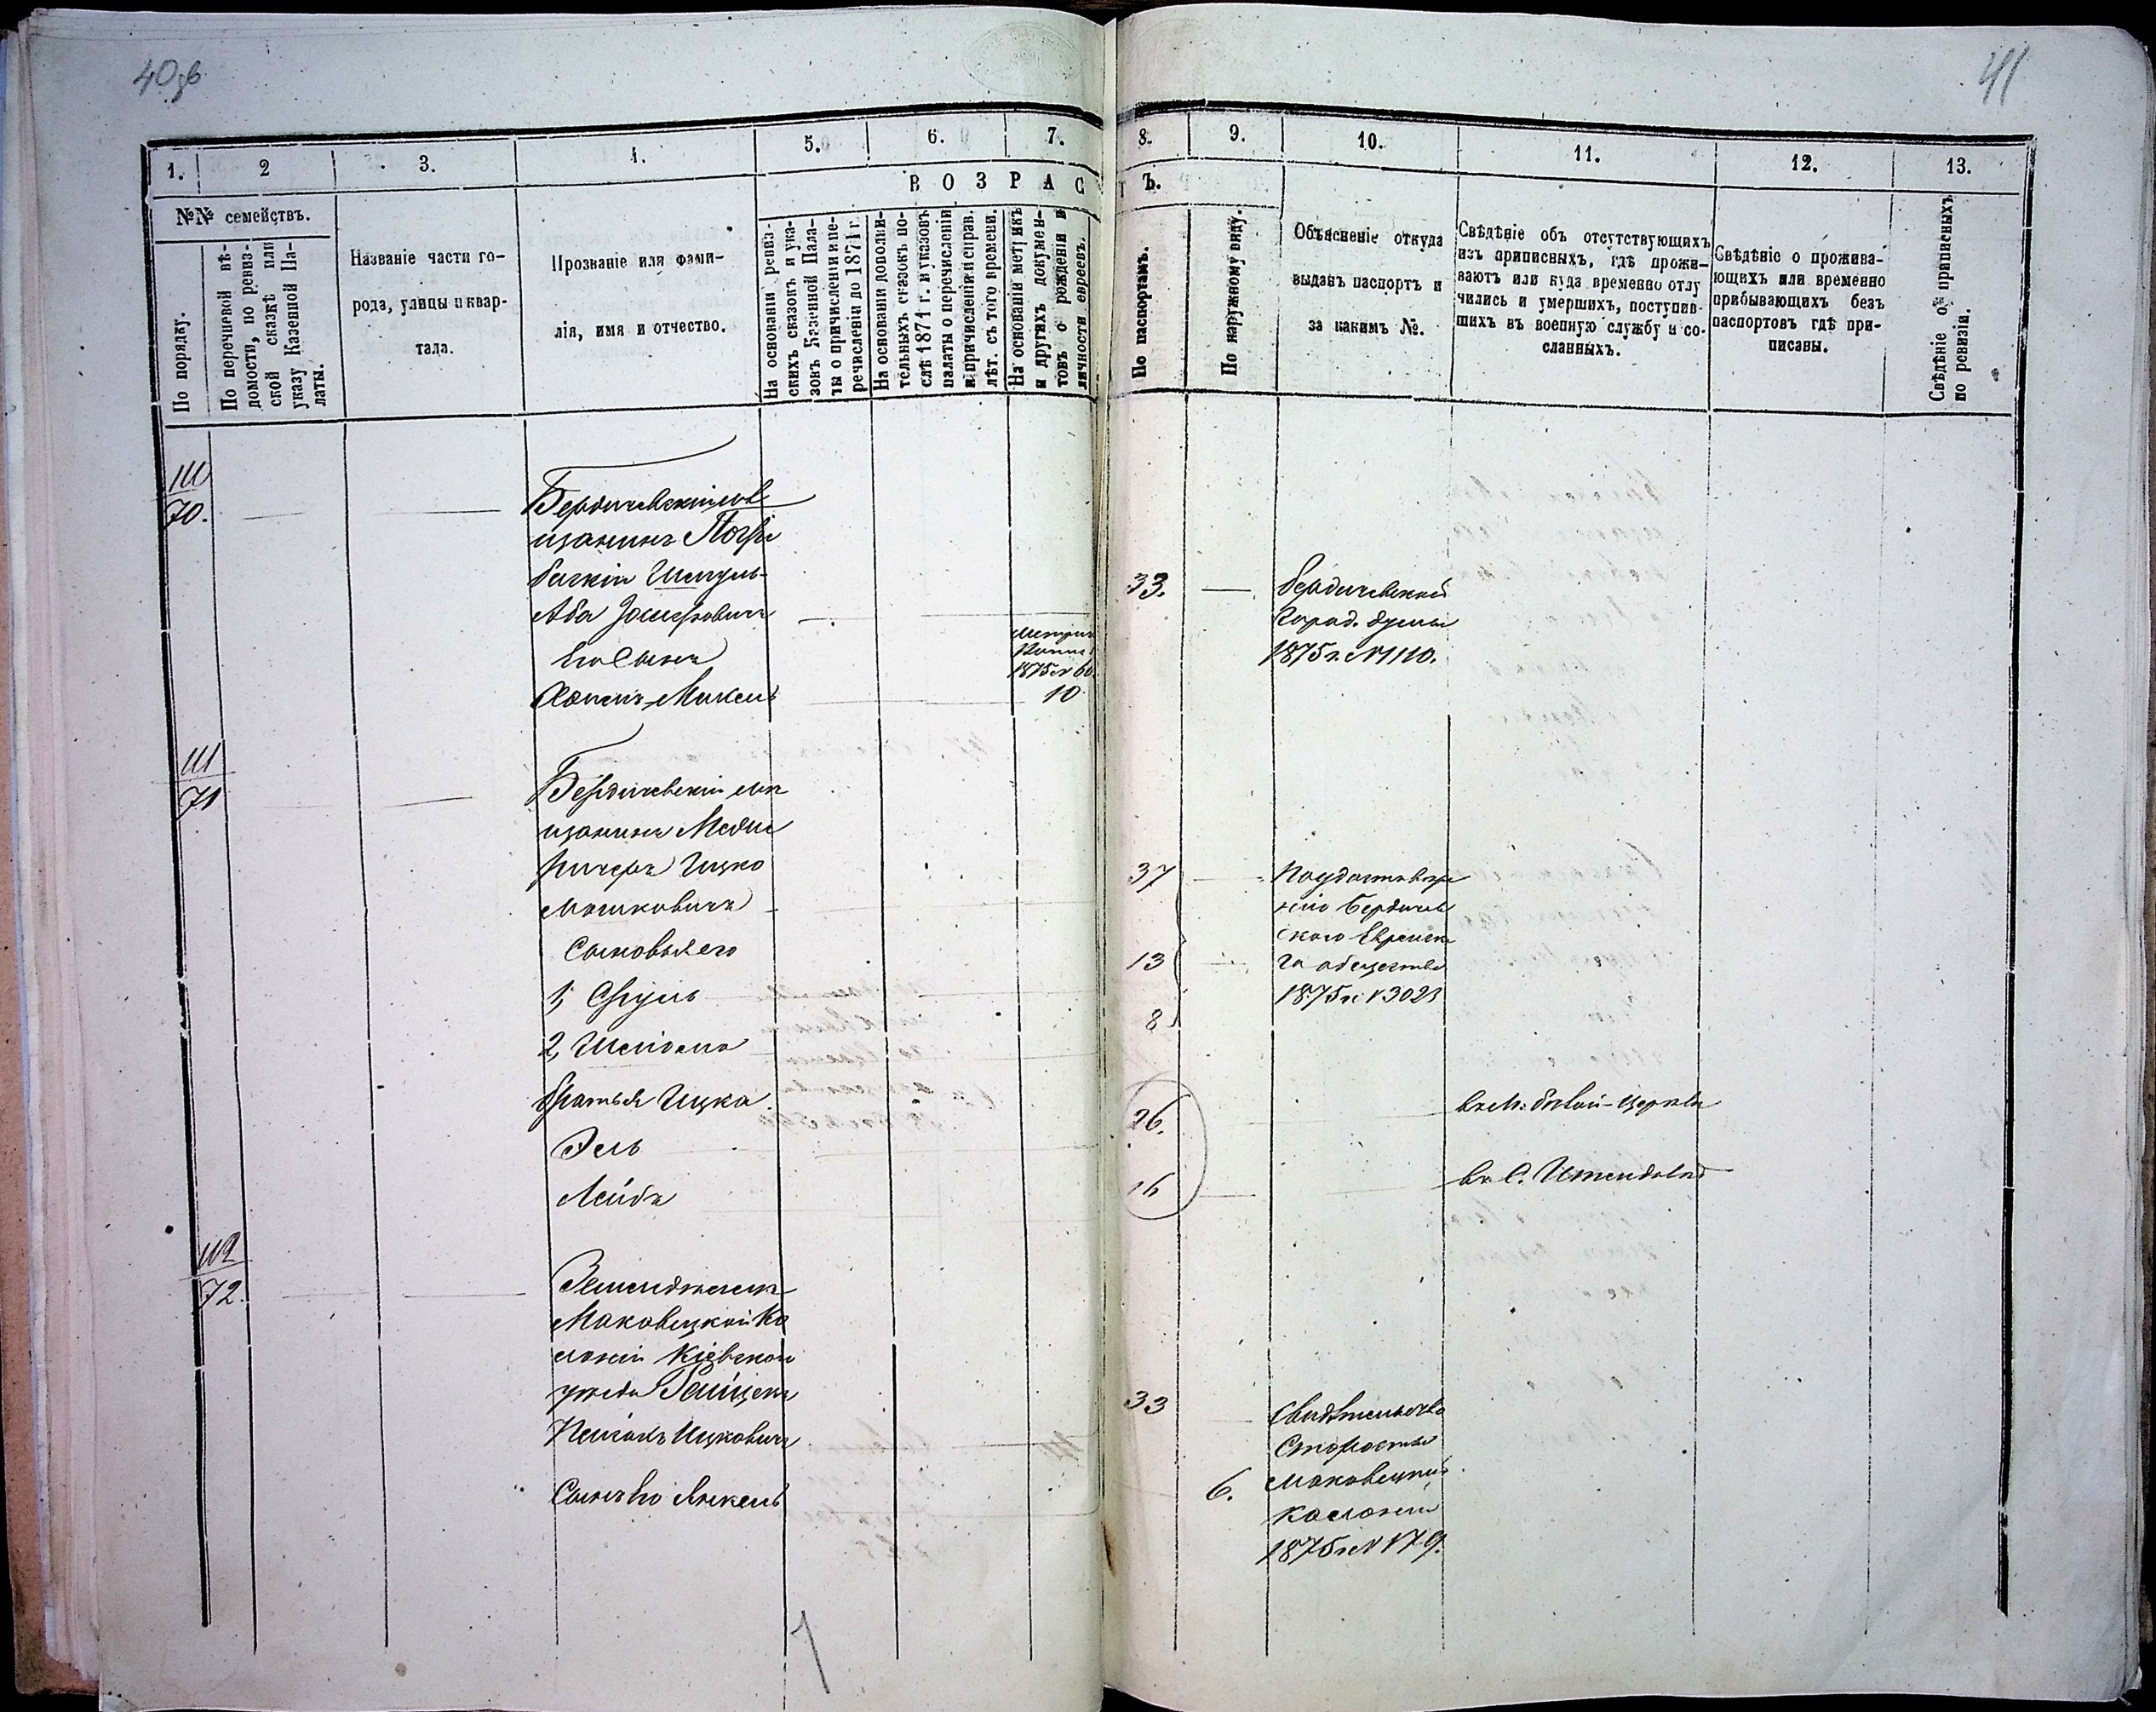 40 об
41
1.
2
3.
4.
5.
6.
7.
8.
9.
10.
11.
12.
13.
№№ семействъ.
В О З Р А С Т Ъ.
По порядку.
По перечневой вѣ-
домости, по ревиз-
ской сказкѣ или
указу Казенной Па-
латы.
Названіе части го-
рода, улицы и квар-
тала.
Прозваніе или фами-
лія, имя и отчество.
На основаніи ревиз-
скихъ сказокъ и ука-
зовъ Казенной Пала-
ты о причисленіи и пе-
речисленіи до 1871 г.
На основаніи дополни-
тельныхъ сказокъ по-
слѣ 1871 г. и указовъ
палаты о перечисленіи
и причисленіи и справ.
лѣт. съ того времени.
На основаніи метрикъ
и другихъ докумен-
товъ о рожденіи и
личности евреевъ.
По паспортамъ.
По наружному виду.
Объясненіе откуда
выданъ паспортъ и
за какимъ №.
Свѣдѣніе объ отсутствующихъ
изъ приписныхъ, гдѣ прожи-
ваютъ или куда временно отлу
чились и умершихъ, поступив-
шихъ въ военную службу и со-
сланныхъ.
Свѣдѣніе о прожива-
ющихъ или временно
прибывающихъ безъ
паспортовъ гдѣ при-
писаны.
Свѣдѣніе о приписныхъ
по ревизіи.
70.
Бердичевскій мѣ
щанинъ
Шмуль-
Аба
Его Сынъ
Микель
1875 № 60
10
33.
Бердичевской
Город. думы
1875 г. № 1110.
111
71
Бердичевскій мѣ
щанинъ Меди
Ицко
Мошковичъ
Сыновья его
1, Сруль
2,
братья Ицка
Эль
Лейба
37
13
8
26.
16
По удостовере
нію Бердичев
ского Еврейска
го общества
1875 г. № 3023
въ м: бѣлой-Церкви
въ С.
112
72.
Земледѣлецъ
Маковецкой Ко
лоніи Кіевскаго
уезда
Ицковичъ
Сынъ Его Янкель
33
6.
Свидѣтельство
Старосты
Маковецкой
колоніи
1875 г. № 179.